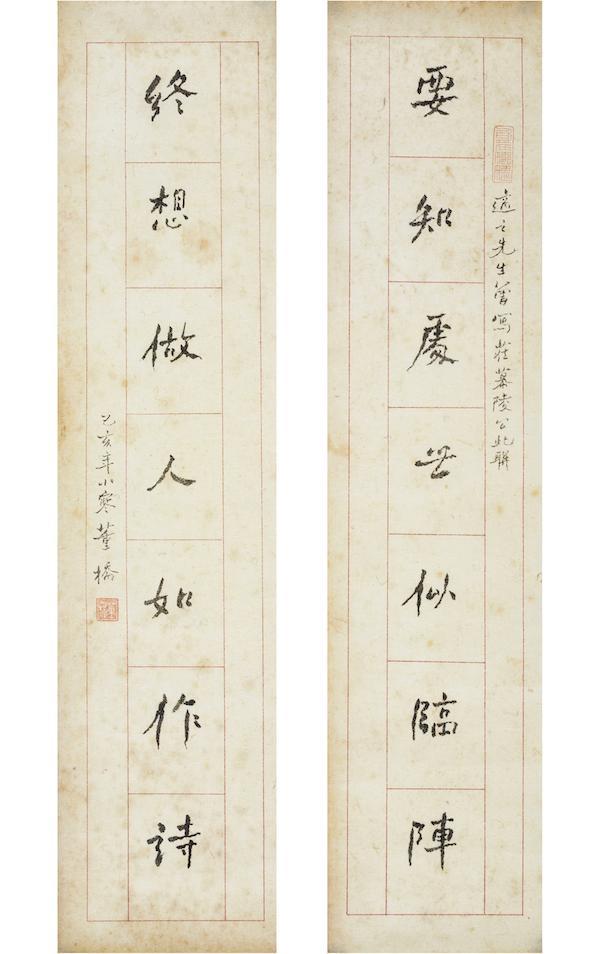 適之先生曾寫莊慕陵公此聯
要知處世似臨陣
終想做人如作詩
己亥年小寒董橋